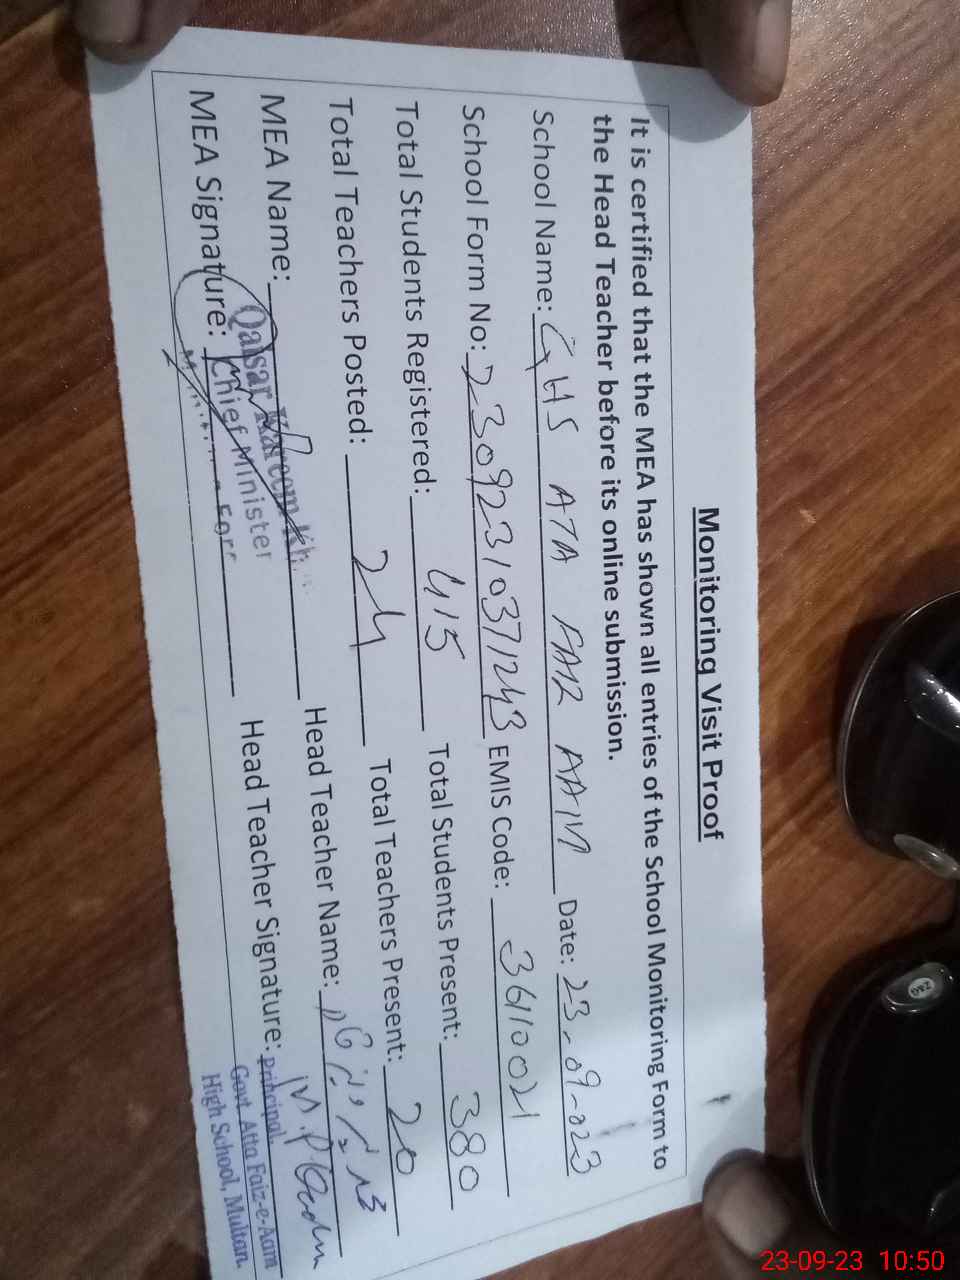 Monitoring Visit Proof
It is certified that the MEA has shown all entries of the School Monitoring Form to
the Head Teacher before its online submission.
School Name: GHS ATA FAIZ AAM Date: 23-09-023
School Form No: 23092310371243 EMIS Code: 36110021
Total Students Registered: 415 Total Students Present: 380
Total Teachers Posted: 24 Total Teachers Present: 20
MEA Name: Qaisar Kareem Head Teacher Name:
MEA Signature: Chief Minister Head Teacher Signature: Principal.
Govt Atta Faiz-e-Aam
High School, Multan.
23-09-23 10:50